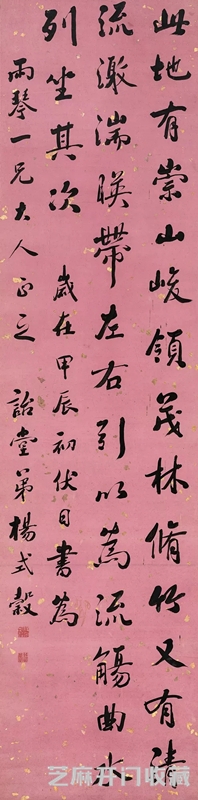 此地有崇山峻領茂林脩竹又有清
流激湍暎帶左右引以為流觴曲水
列坐其次 歲在甲辰初伏日書為
雨琴一兄大人正之 詒堂弟楊式穀
芝麻开门收藏